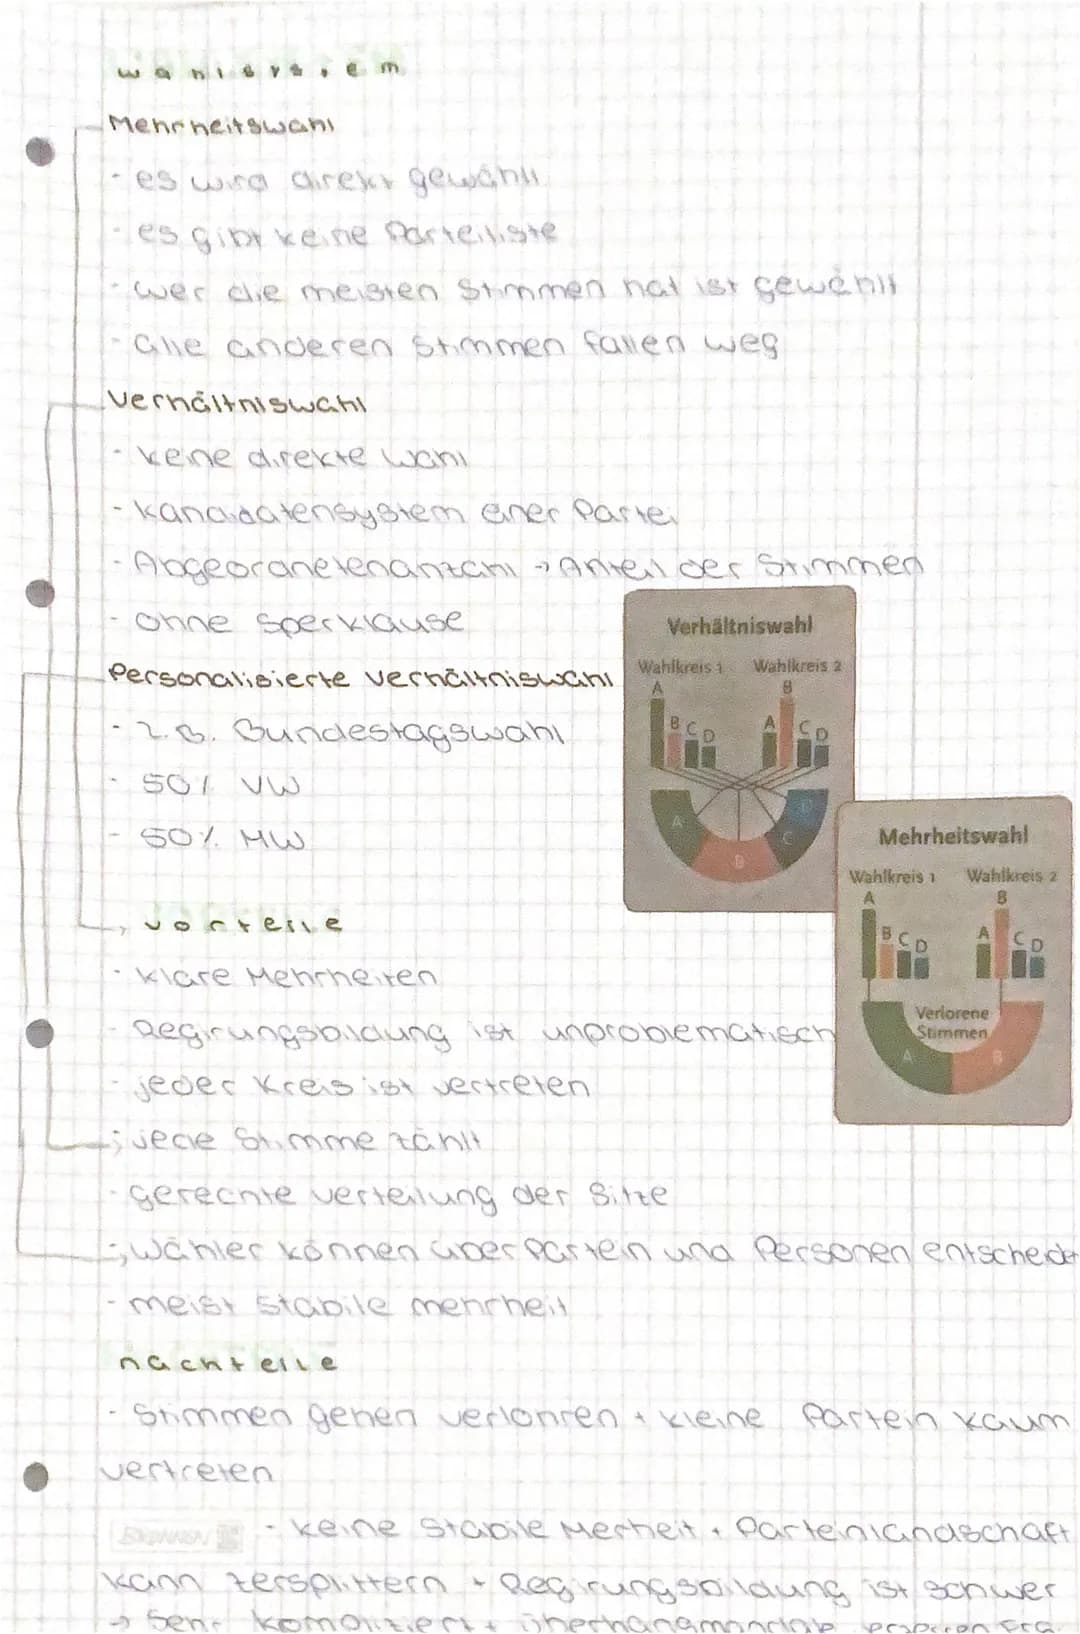 wahlsystem
Mehrheitswahl
- es wird direkt gewählt
- es gibt keine Parteiliste
- wer die meisten Stimmen hat ist gewählt
- alle anderen Stimmen fallen weg
Verhältniswahl
- keine direkte Wahl
- Kandidatensystem einer Partei
- Abgeordnetenanzahl → Anteil der Stimmen
- ohne Sperklause
Personalisierte Verhältniswahl
- z.B. Bundestagswahl
- 50% VW
- 50% MW
Verhältniswahl
Wahlkreis 1 Wahlkreis 2
A B C D A B C D
A B C D
Mehrheitswahl
Wahlkreis 1 Wahlkreis 2
A B C D A B C D
Verlorene
Stimmen
A B
vorteile
- klare Mehrheiten
- Regirungsbildung ist unproblematisch
- jeder Kreis ist vertreten
- jede Stimme zählt
- gerechte verteilung der Sitze
- Wähler können über Partein und Personen entscheide
- meist stabile mehrheit
nachteile
- Stimmen gehen verlohren + kleine Partein kaum
vertreten
- keine Stabile Merheit + Parteinlandschaft
kann zersplittern + Regirungsbildung ist schwer
→ Sehr